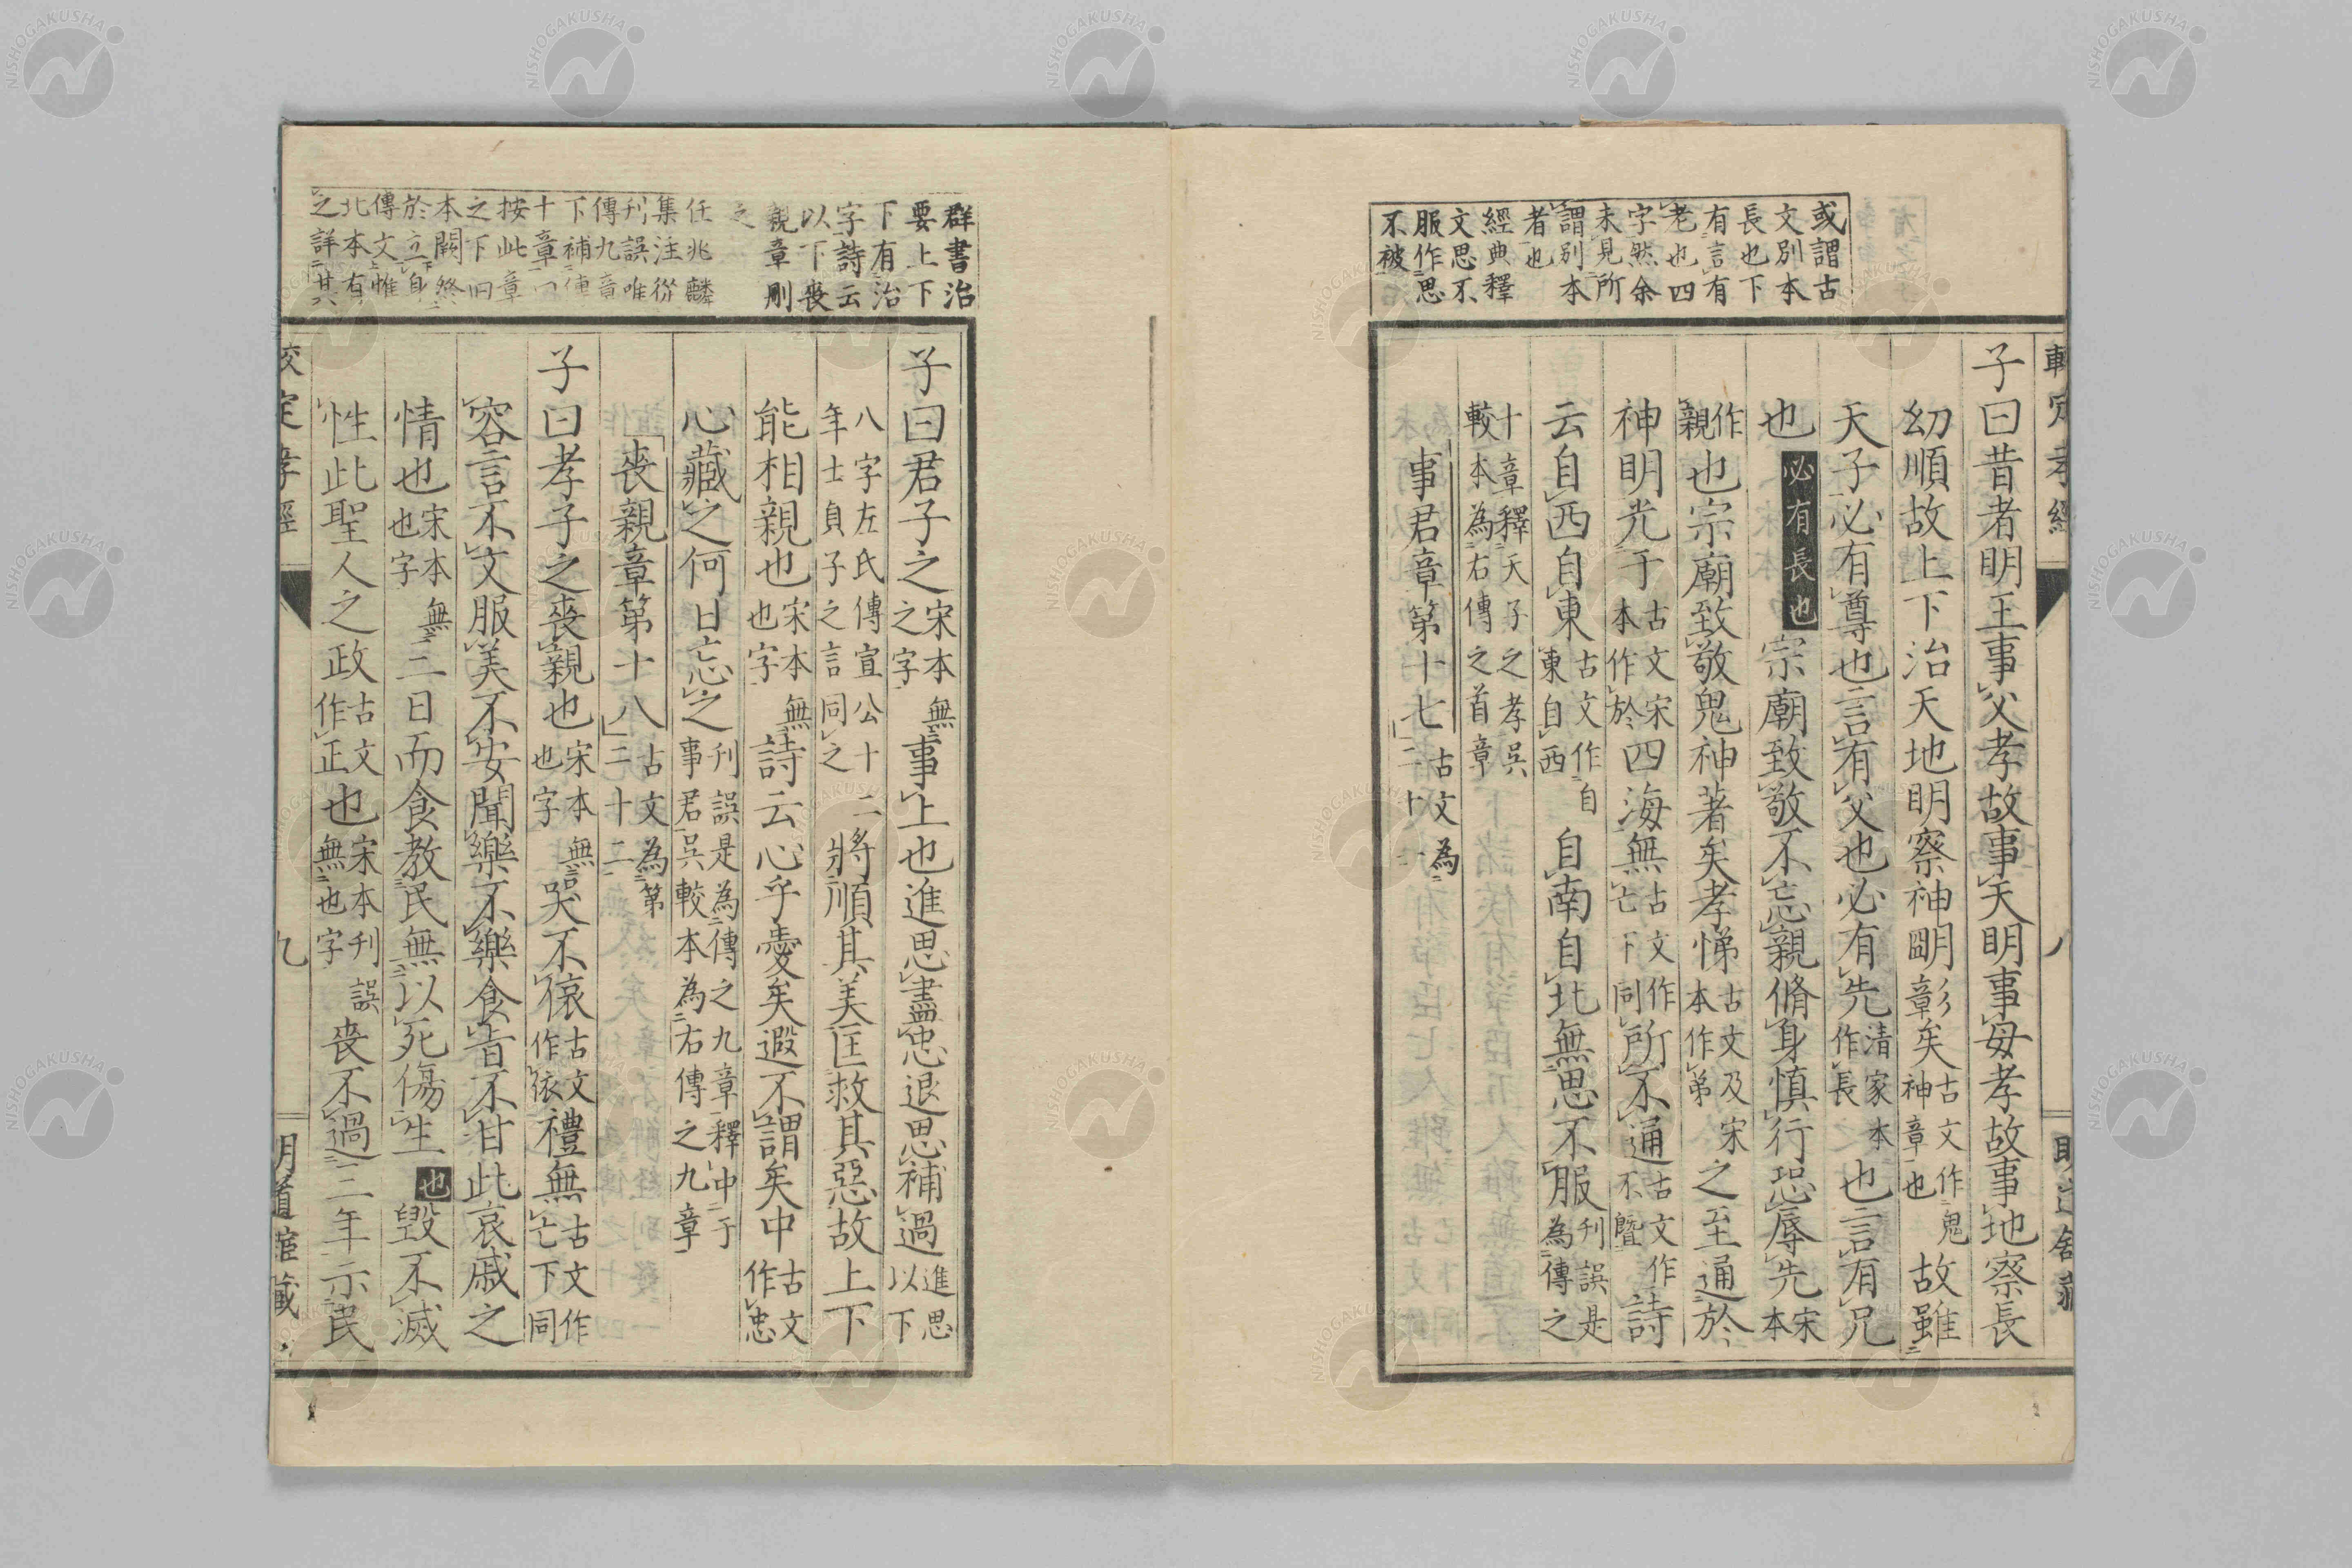 或謂古
文別本
長也下
有言有
老也四
字然余
未見所
謂別本
者也
經典釋
文思不
服作思
不被
子曰昔者明王事父孝故事天明事母孝故事地察長
幼順故上下治天地明察神明彰矣古文作鬼神章也故雖
天子必有尊也言有父也必有先清家本作長也言有兄
也必有長也宗廟致敬不忘親脩身慎行恐辱先宋本
作親也宗廟致敬鬼神著矣孝悌古文及宋本作弟之至通於
神明光于古文宋本作於四海無古文作亡下同所不通古文作不曁詩
云自西自東古文作自東自西自南自北無思不服刊誤是為傳之
十章釋天子之孝吳較本為右傳之首章
事君章第十七古文為二十一
八
群書治
要上下
下有治
字詩云
以下喪
親章刪
之
任兆麟
集注從
刊誤唯
傳九章
下補傳
十章
按此章
之下旧
本闕
於立身
傳文惟
北本有
之詳其
子曰君子之宋本無之字事上也進思盡忠退思補過進思以下
八字左氏傳宣公十二年士貞子之言同之將順其美匡救其惡故上下
能相親也宋本無也字詩云心乎愛矣遐不謂矣中古文作忠
心藏之何日忘之刊誤是為傳之九章釋中于事君吳較本為右傳之九章
喪親章第十八古文為第二十二
子曰孝子之喪親也宋本無也字哭不偯古文作依禮無古文作亡下同
容言不文服美不安聞樂不樂食旨不甘此哀戚之
情也宋本無也字三日而食教民無以死傷生也毀不滅
性此聖人之政古文作正也宋本刊誤無也字喪不過三年示民
九